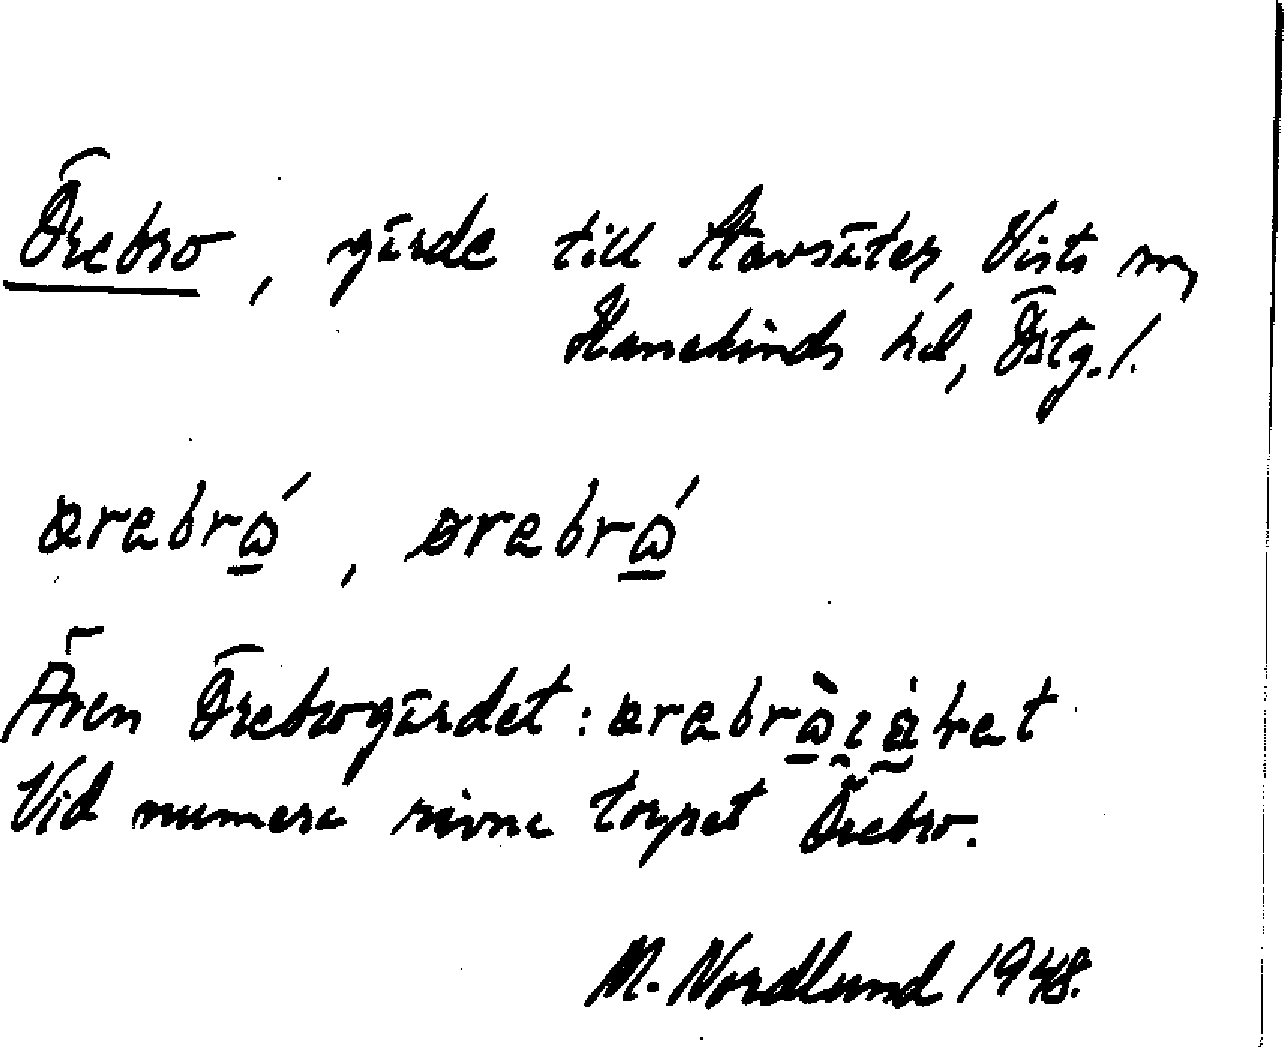 Örebro, gärde till Stavsäter, Vists sn,
Hanekinds hd, Östg. l.
ørebrώ, ørebrώ
Även Örebrogärdet:
Vid numera rivna torpet Örebro.
M. Nordlund 1948.